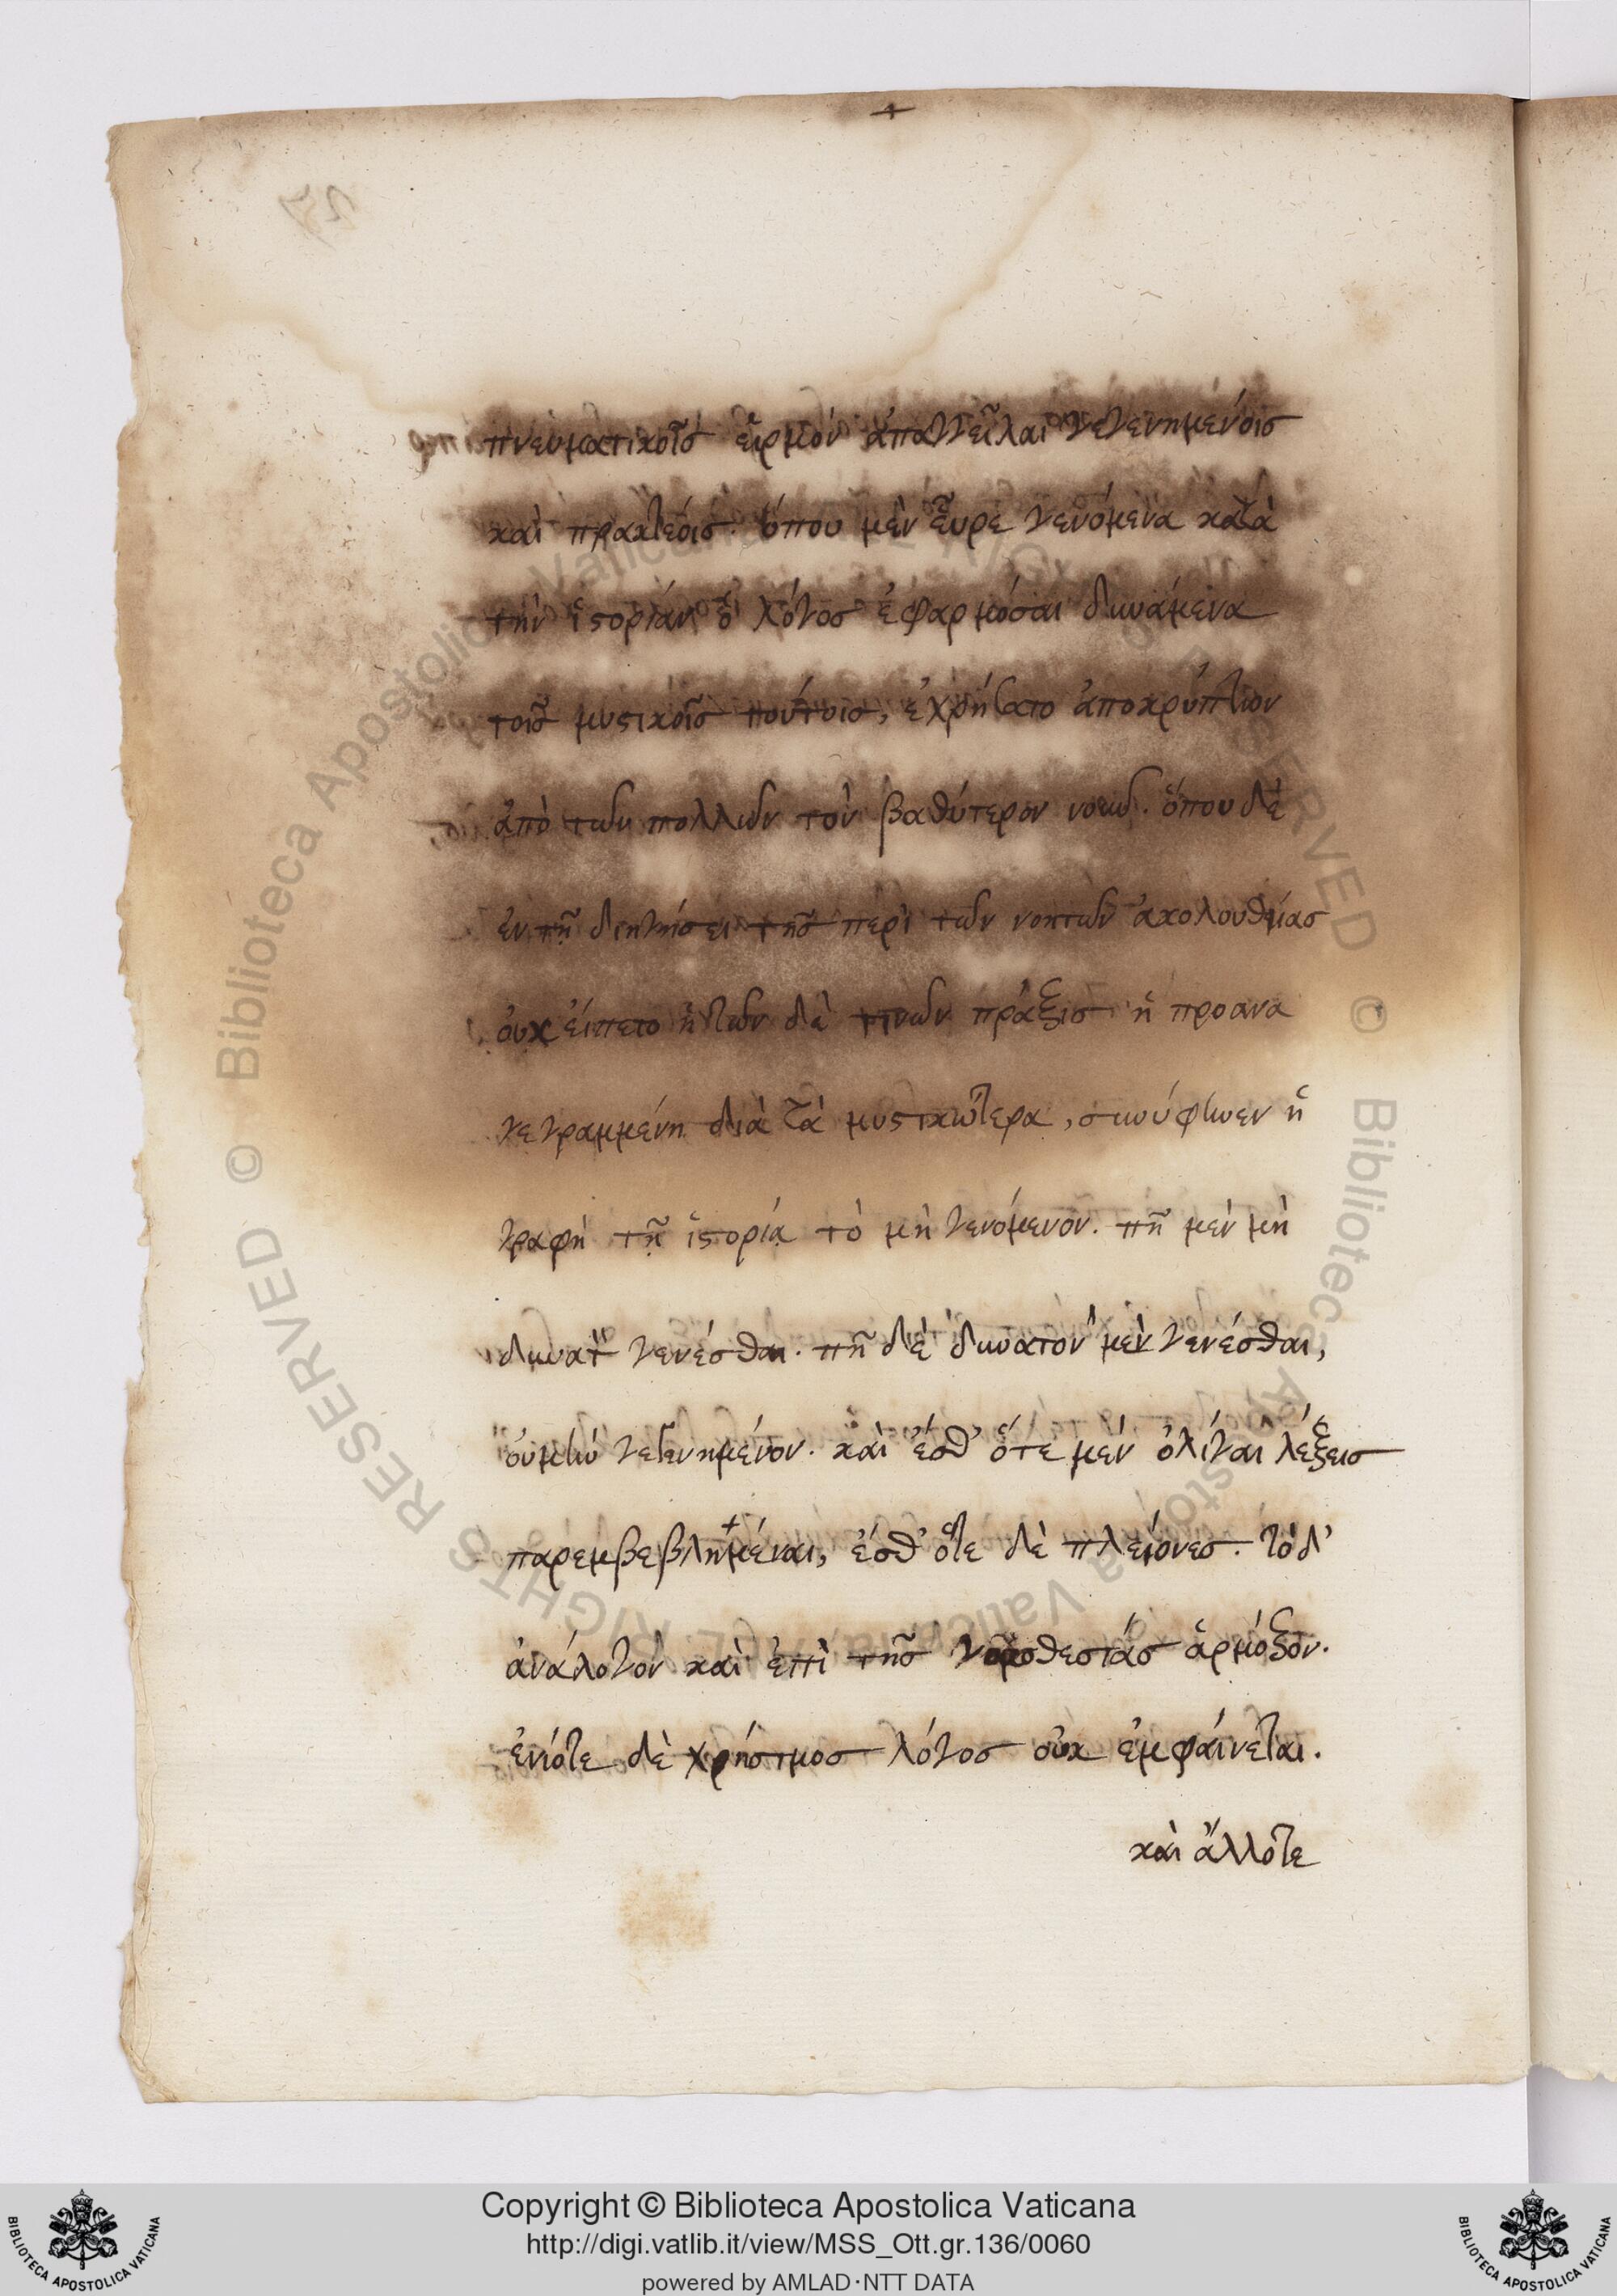 πνευματικοῖς εἱρμὸν ἀπαγγεῖλαι γεγενημένοις
καὶ πρακτέοις. ὅπου μὲν εὗρε γενόμενα κατὰ
τὴν ἱστορίαν ὁ λόγος ἐφαρμόσαι δυνάμενα
τοῖς μυστικοῖς τούτοις, ἐχρήσατο ἀποκρύπτων
ἀπὸ τῶν πολλῶν τὸν βαθύτερον νοῦν. ὅπου δὲ
ἐν τῇ διηγήσει τῆς περὶ τῶν νοητῶν ἀκολουθίας
οὐχ εἵπετο ἡ τῶν δὲ τινῶν πράξις ἡ προανα
γεγραμμένη διὰ τὰ μυστικώτερα, συνύφηνεν ἡ
γραφὴ τῇ ἱστορίᾳ τὸ μὴ γενόμενον. πῇ μὲν μὴ
δυνατὸν γενέσθαι. πῇ δὲ δυνατὸν μὲν γενέσθαι,
οὐ μὴν γεγενημένον. καὶ ἔσθ' ὅτε μὲν ὀλίγαι λέξεις
παρεμβεβλημέναι, ἔσθ' ὅτε δὲ πλείονες. τὸ δ'
ἀνάλογον καὶ ἐπὶ τῆς νομοθεσίας ἁρμόξον.
ἐνίοτε δὲ χρήσιμος λόγος οὐκ ἐμφαίνεται.
καὶ ἄλλοτε
Copyright © Biblioteca Apostolica Vaticana
http://digi.vatlib.it/view/MSS_Ott.gr.136/0060
powered by AMLAD·NTT DATA